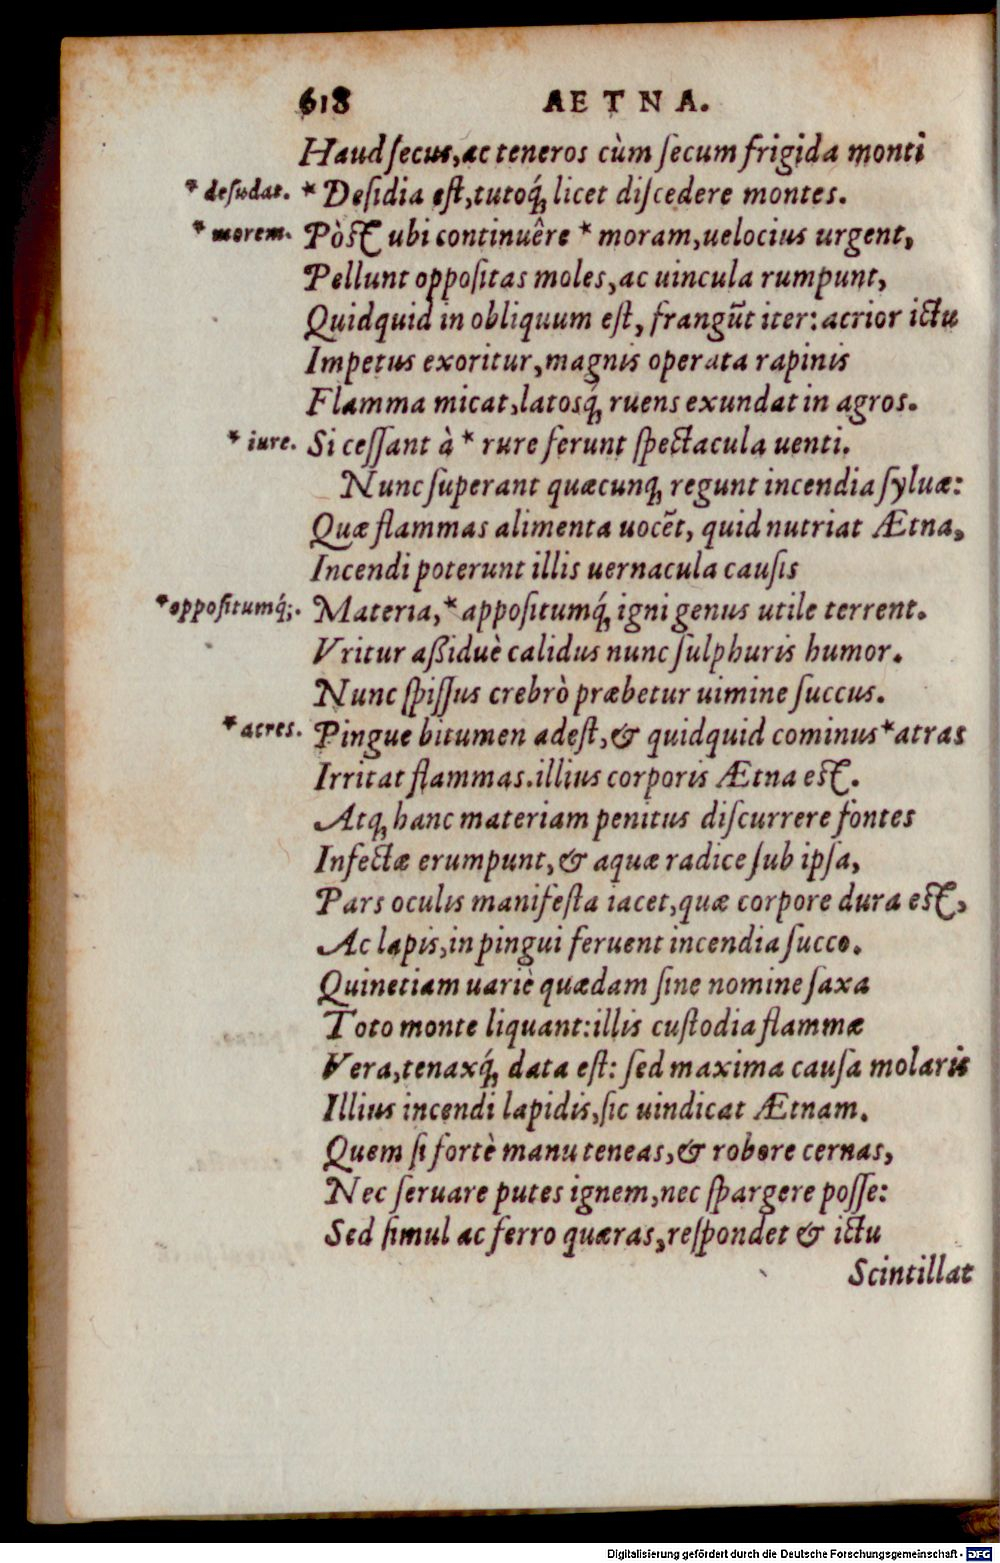 618 AETNA.
Haud ſecus, ac teneros cùm ſecum frigida monti
* deſudat. * Deſidia eſt, tutoq́; licet diſcedere montes.
* morem. Pòſt ubi continuêre * moram, uelocius urgent,
Pellunt oppoſitas moles, ac uincula rumpunt,
Quidquid in obliquum eſt, frangūt iter: acrior ictu
Impetus exoritur, magnis operata rapinis
Flamma micat, latosq́; ruens exundat in agros.
* iure. Si ceſſant à * rure ferunt ſpectacula uenti.
Nunc ſuperant quæcunq; regunt incendia ſyluæ:
Quæ flammas alimenta uocēt, quid nutriat Ætna,
Incendi poterunt illis uernacula cauſis
* oppoſitumq́;. Materia, * appoſitumq́; igni genus utile terrent.
Vritur aßiduè calidus nunc ſulphuris humor.
Nunc ſpiſſus crebrò præbetur uimine ſuccus.
* acres. Pingue bitumen adeſt, & quidquid cominus * atras
Irritat flammas. illius corporis Ætna eſt.
Atq; hanc materiam penitus diſcurrere fontes
Infectæ erumpunt, & aquæ radice ſub ipſa,
Pars oculis manifeſta iacet, quæ corpore dura eſt,
Ac lapis, in pingui feruent incendia ſucco.
Quinetiam uariè quædam ſine nomine ſaxa
Toto monte liquant: illis cuſtodia flammæ
Vera, tenaxq́; data eſt: ſed maxima cauſa molaris
Illius incendi lapidis, ſic uindicat Ætnam.
Quem ſi fortè manu teneas, & robore cernas,
Nec ſeruare putes ignem, nec ſpargere poſſe:
Sed ſimul ac ferro quæras, reſpondet & ictu
Scintillat
Digitalisierung gefördert durch die Deutsche Forschungsgemeinschaft - DFG